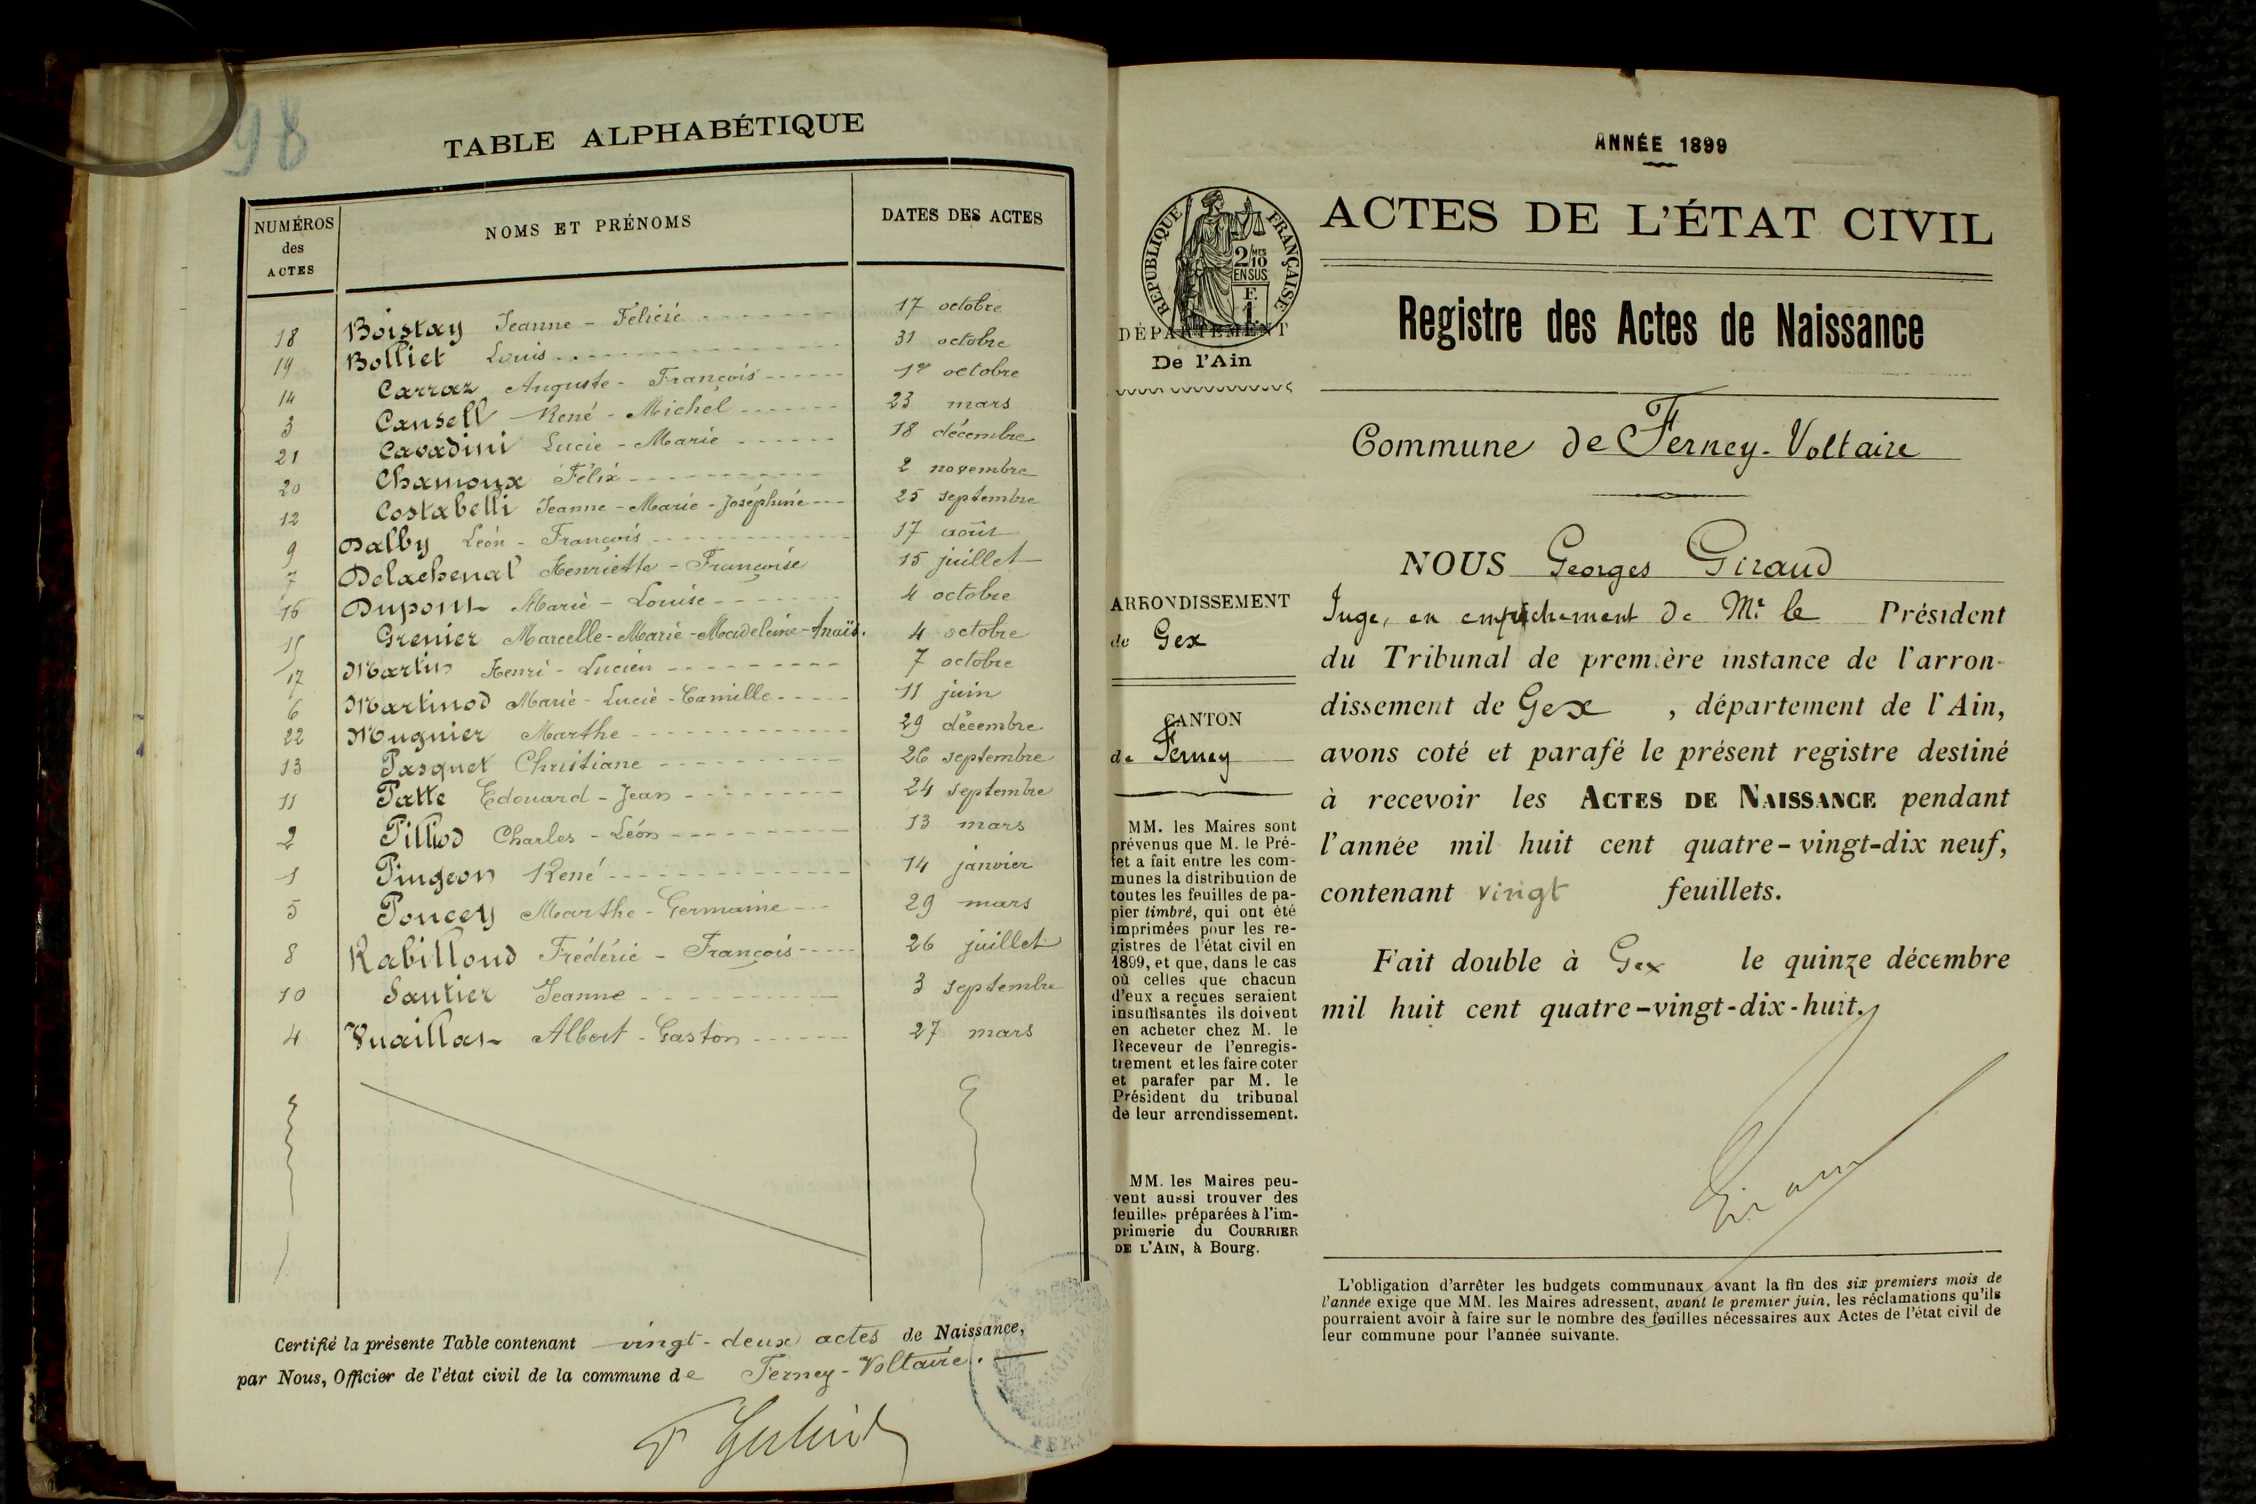 98
TABLE ALPHABÉTIQUE
NUMÉROS des ACTES
NOMS ET PRÉNOMS
DATES DES ACTES
18 Boistay Jeanne - Félicie 17 octobre
19 Bolliet Louis 31 octobre
14 Carraz Auguste - François 1er octobre
3 Causell René - Michel 23 mars
21 Cavadini Lucie - Marie 18 décembre
20 Chamoux Félix 2 novembre
12 Costabelli Jeanne - Marie - Joséphine 25 septembre
9 Dalby Léon - François 17 août
7 Delachenal Henriette - Françoise 15 juillet
16 Dupont Marie - Louise 4 octobre
15 Grenier Marcelle - Marie - Madeleine - Anaïs. 4 octobre
17 Martin Henri - Lucien 7 octobre
6 Martinod Marie - Lucie - Camille 11 juin
22 Mugnier Marthe 29 décembre
13 Pasquet Christiane 26 septembre
11 Patte Edouard - Jean 24 septembre
2 Pilliod Charles - Léon 13 mars
1 Pingeon René 14 janvier
5 Poncey Marthe - Germaine 29 mars
8 Rabilloud Frédéric - François 26 juillet
10 Sautier Jeanne 3 septembre
4 Vuaillat Albert - Gaston 27 mars
Certifié la présente Table contenant vingt-deux actes de Naissance,
par Nous, Officier de l'état civil de la commune de Ferney-Voltaire.
ANNÉE 1899
RÉPUBLIQUE FRANÇAISE
2/10 MES
EN SUS
F.
1.
DÉPARTEMENT
De l'Ain
ARRONDISSEMENT
de Gex
CANTON
de Ferney
MM. les Maires sont
prévenus que M. le Pré-
fet a fait entre les com-
munes la distribution de
toutes les feuilles de pa-
pier timbré, qui ont été
imprimées pour les re-
gistres de l'état civil en
1899, et que, dans le cas
où celles que chacun
d'eux a reçues seraient
insuffisantes ils doivent
en acheter chez M. le
Receveur de l'enregis-
trement et les faire coter
et parafer par M. le
Président du tribunal
de leur arrondissement.
MM. les Maires peu-
vent aussi trouver des
feuilles préparées à l'im-
primerie du COURRIER
DE L'AIN, à Bourg.
ACTES DE L'ÉTAT CIVIL
Registre des Actes de Naissance
Commune de Ferney-Voltaire
NOUS Georges Giraud
Juge, en empêchement de Mr le Président
du Tribunal de première instance de l'arron-
dissement de Gex , département de l'Ain,
avons coté et parafé le présent registre destiné
à recevoir les ACTES DE NAISSANCE pendant
l'année mil huit cent quatre-vingt-dix neuf,
contenant vingt feuillets.
Fait double à Gex le quinze décembre
mil huit cent quatre-vingt-dix-huit.
Giraud
L'obligation d'arrêter les budgets communaux avant la fin des six premiers mois de
l'année exige que MM. les Maires adressent, avant le premier juin, les réclamations qu'ils
pourraient avoir à faire sur le nombre des feuilles nécessaires aux Actes de l'état civil de
leur commune pour l'année suivante.